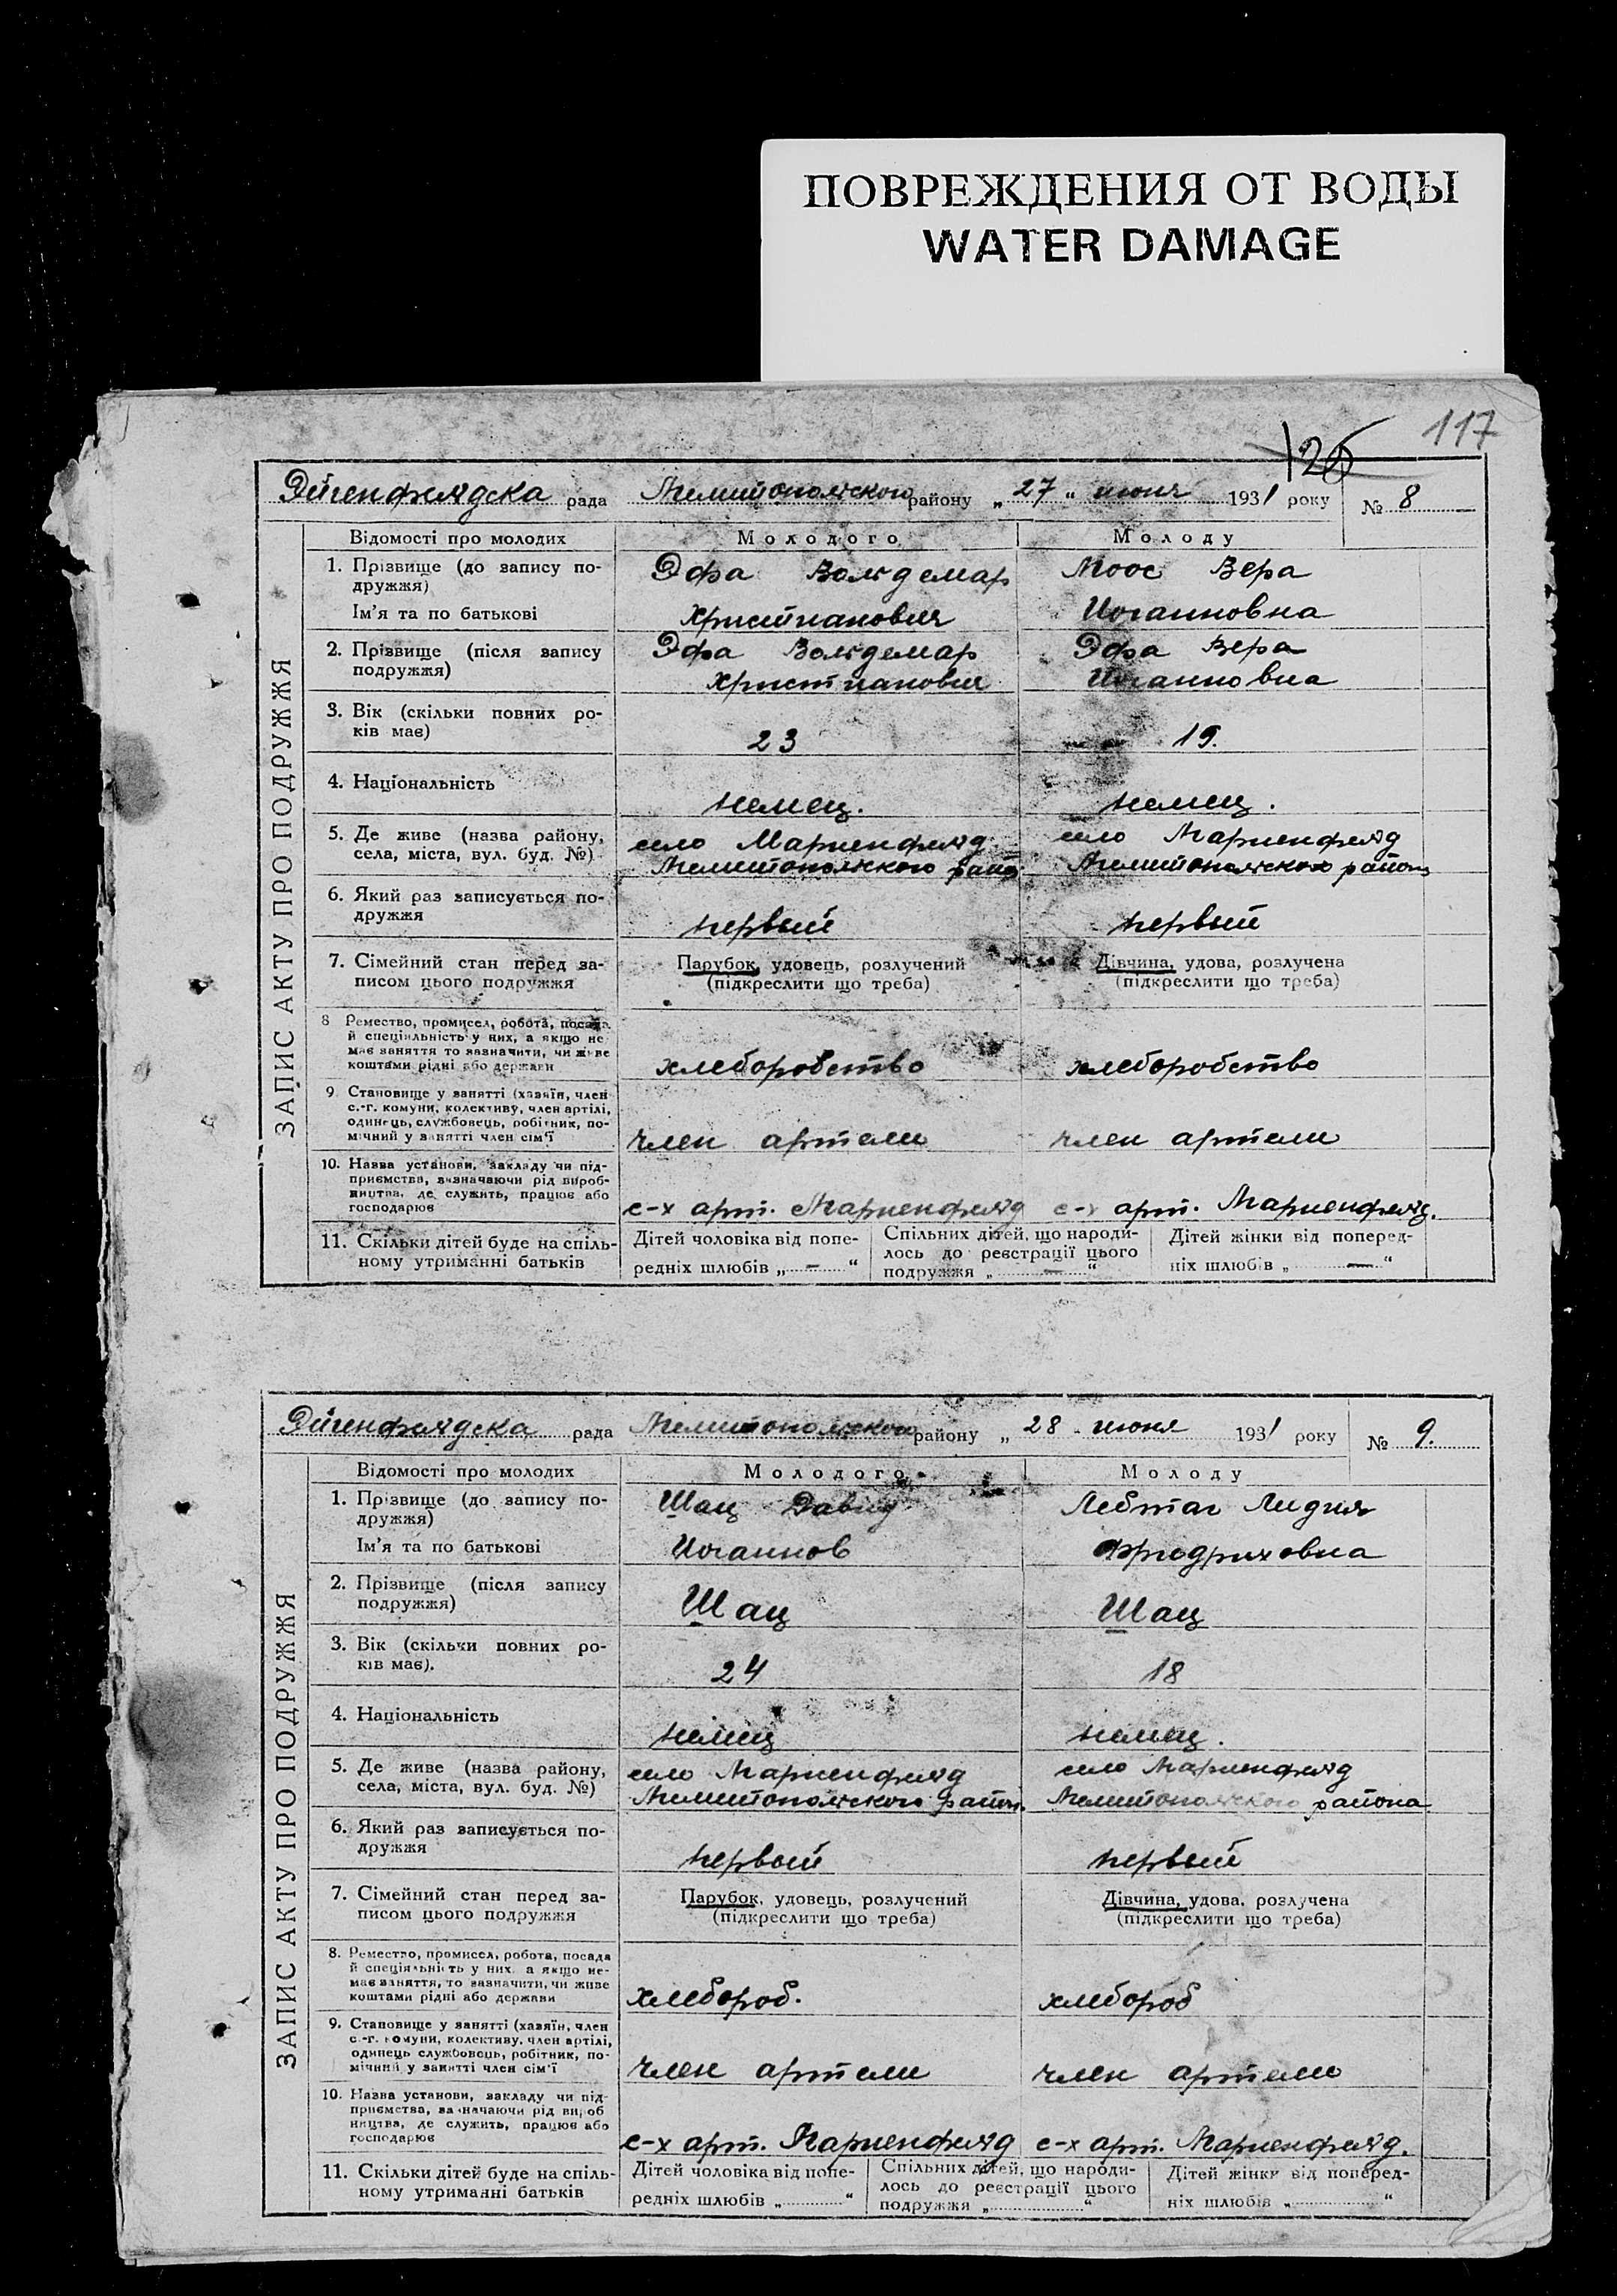 ПОВРЕЖДЕНИЯ ОТ ВОДЫ
WATER DAMAGE
117
126
Эйгенфельдска рада Мелитопольского району „27“ июня 1931 року № 8
ЗАПИС АКТУ ПРО ПОДРУЖЖЯ
Відомості про молодих Молодого Молоду
1. Прізвище (до запису по- Эфа Вольдемар Моос Вера
дружжя)
Ім'я та по батькові Христианович Иоганновна
2. Прізвище (після запису Эфа Вольдемар Эфа Вера
подружжя) Христианович Иоганновна
3. Вік (скільки повних ро-
ків має) 23 19.
4. Національність немец. немец.
5. Де живе (назва району, село Мариенфельд село Мариенфельд
села, міста, вул. буд. №) Мелитопольского район Мелитопольского района
6. Який раз записується по-
дружжя первый первый
7. Сімейний стан перед за- Парубок, удовець, розлучений Дівчина, удова, розлучена
писом цього подружжя (підкреслити що треба) (підкреслити що треба)
8 Ремество, промисел, робота, посада
й спеціяльність у них, а якщо не
має заняття то зазначити, чи живе
коштами рідні або держави хлеборобство хлеборобство
9. Становище у занятті (хазяїн, член
с.-г. комуни, колективу, член артілі,
одинець, службовець, робітник, по-
мічний у занятті член сім'ї член артели член артели
10. Назва установи, закладу чи під-
приємства, зазначаючи рід вироб-
ництва, де служить, працює або
господарює с-х арт. Мариенфельд с-х арт. Мариенфельд.
11. Скільки дітей буде на спіль- Дітей чоловіка від попе- Спільних дітей, що народи- Дітей жінки від поперед-
ному утриманні батьків редніх шлюбів „ — “ лось до реєстрації цього подружжя „ — “ ніх шлюбів „ — “
Эйгенфельдска рада Мелитопольского району „28 июня 1931 року № 9.
ЗАПИС АКТУ ПРО ПОДРУЖЖЯ
Відомості про молодих Молодого Молоду
1. Прізвище (до запису по- Шац Давид Лебтаг Лидия
дружжя)
Ім'я та по батькові Иоганнов Фридриховна
2. Прізвище (після запису
подружжя) Шац Шац
3. Вік (скільки повних ро-
ків має). 24 18
4. Національність немец немец.
5. Де живе (назва району, село Мариенфельд село Мариенфельд
села, міста, вул. буд. №) Мелитопольского район. Мелитопольского района
6. Який раз записується по-
дружжя первый первый
7. Сімейний стан перед за- Парубок, удовець, розлучений Дівчина, удова, розлучена
писом цього подружжя (підкреслити що треба) (підкреслити що треба)
8. Ремество, промисел, робота, посада
й спеціяльність у них, а якщо не-
має заняття, то зазначити, чи живе
коштами рідні або держави хлебороб. хлебороб
9. Становище у занятті (хазяїн, член
с.-г. комуни, колективу, член артілі,
одинець службовець, робітник, по-
мічний у занятті член сім'ї член артели член артели
10. Назва установи, закладу чи під-
приємства, зазначаючи рід вироб
ництва, де служить, працює або
господарює с-х арт. Мариенфельд с-х арт. Мариенфельд.
11. Скільки дітей буде на спіль- Дітей чоловіка від попе- Спільних дітей, що народи- Дітей жінки від поперед-
ному утриманні батьків редніх шлюбів „ “ лось до реєстрації цього подружжя „ “ ніх шлюбів „ “